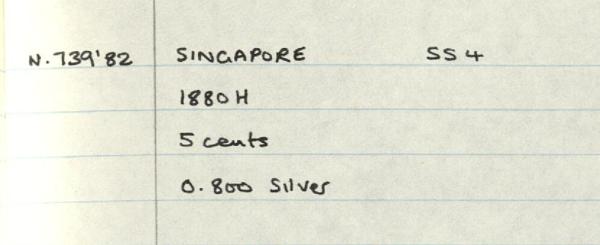 N.739'82 SINGAPORE SS 4
1880 H
5 cents
0.800 Silver